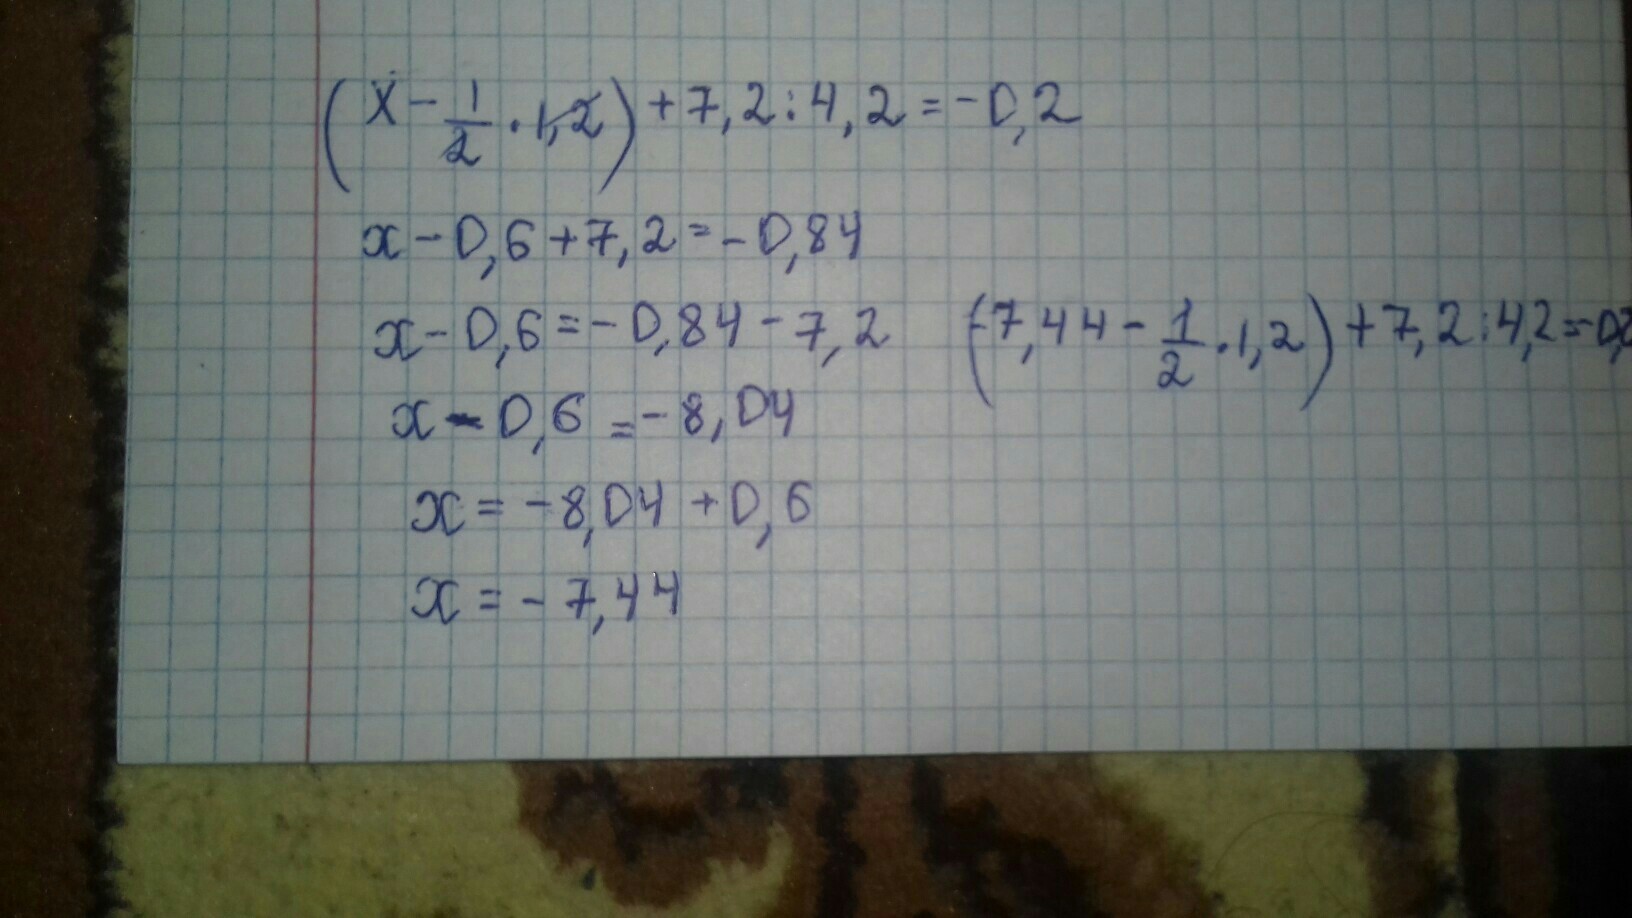 (x - 1/2 · 1,2) + 7,2 : 4,2 = -0,2
x - 0,6 + 7,2 = -0,84
x - 0,6 = -0,84 - 7,2
(-7,44 - 1/2 · 1,2) + 7,2 : 4,2 = -0,2
x - 0,6 = -8,04
x = -8,04 + 0,6
x = -7,44